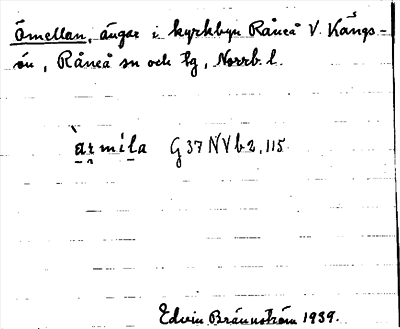 Åmellan, ängar i kyrkbyn Råneå V. Kängs-
ön, Råneå sn och tg, Norrb. l.
G 37 NVb2, 115
Edvin Brännström 1939.